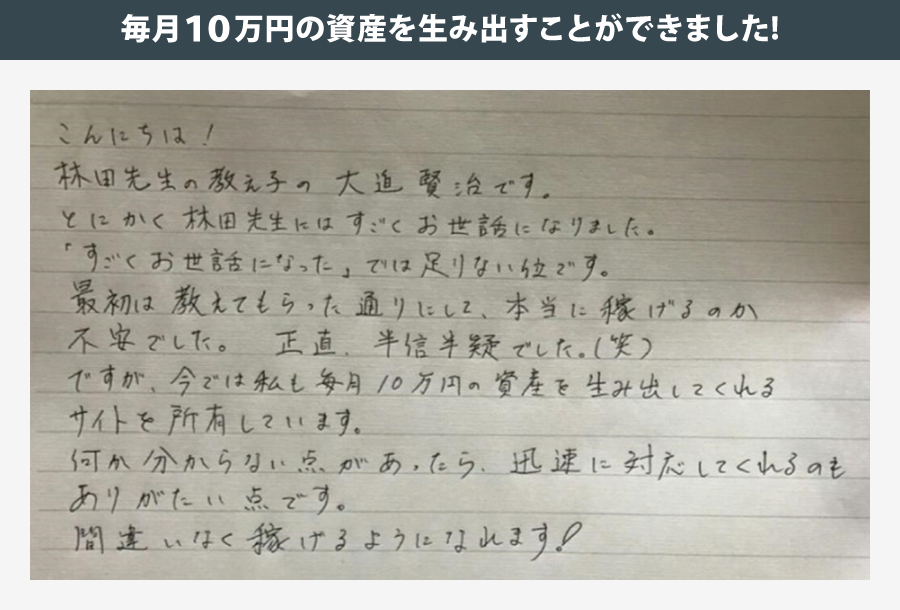 毎月10万円の資産を生み出すことができました!
こんにちは!
林田先生の教え子の 大迫 賢治です。
とにかく 林田先生には すごく お世話になりました。
「すごく お世話になった」では 足りない位です。
最初は 教えてもらった 通りにして、本当に 稼げるのか
不安でした。 正直、半信半疑でした。(笑)
ですが、今では 私も 毎月 10万円の 資産を 生み出してくれる
サイトを 所有しています。
何か 分からない点が あったら、迅速に 対応してくれるのも
ありがたい点です。
間違いなく 稼げるようになれます!